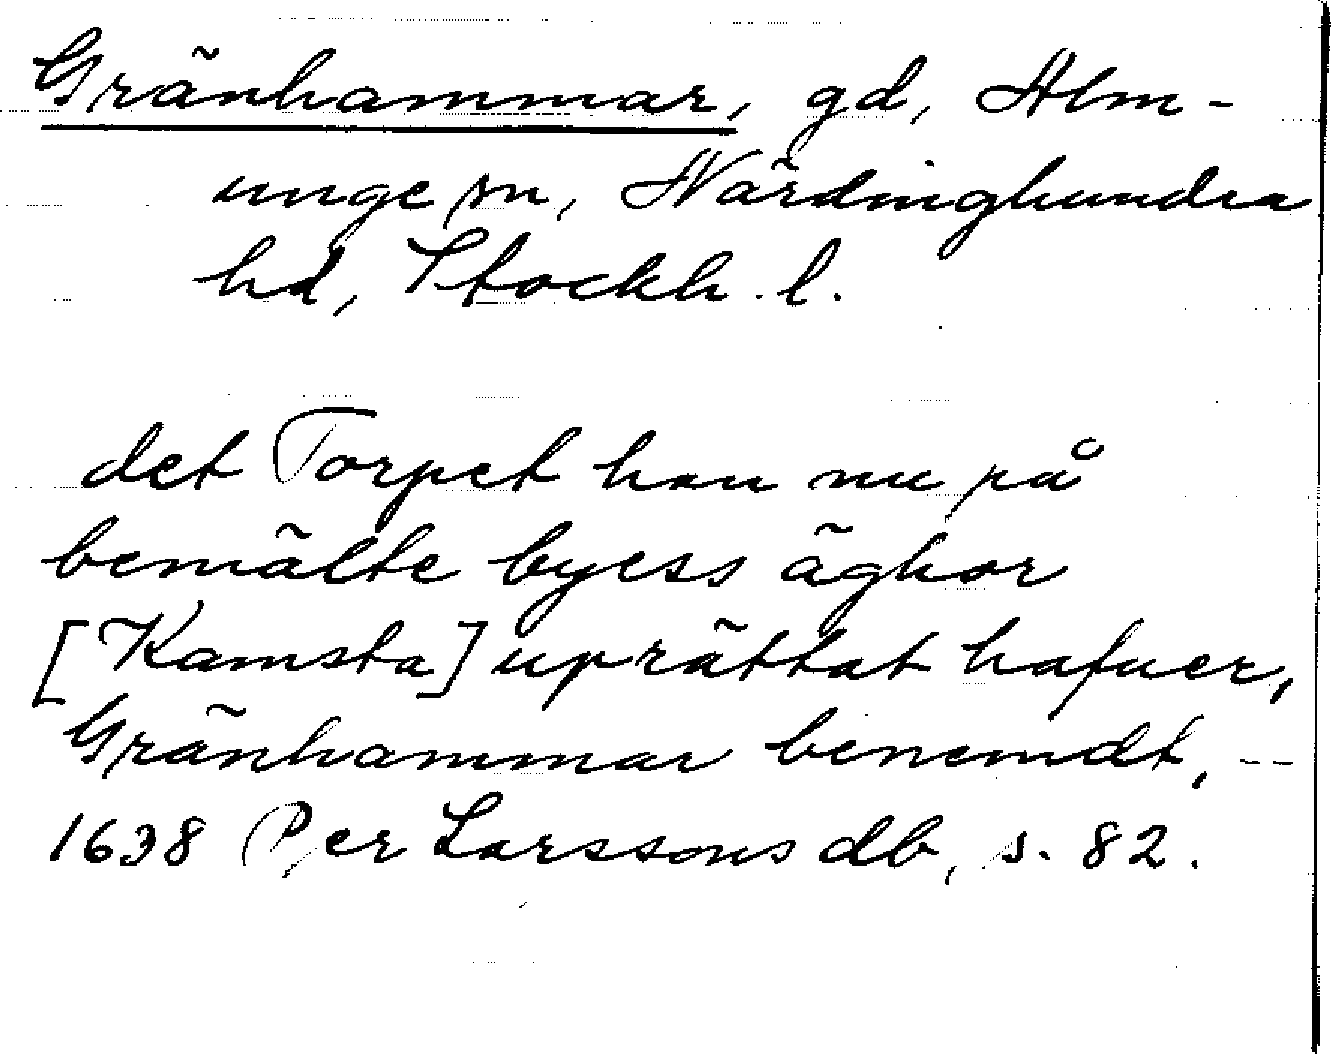 Gränhammar, gd, Alm-
unge sn, Närdinghundra
hd, Stockh. l.
det Torpet han nu på
bemälte byess äghor
[Kamsta] uprättat hafuer,
Gränhammar benemdt, --
1638 Per Larssons db, s. 82.